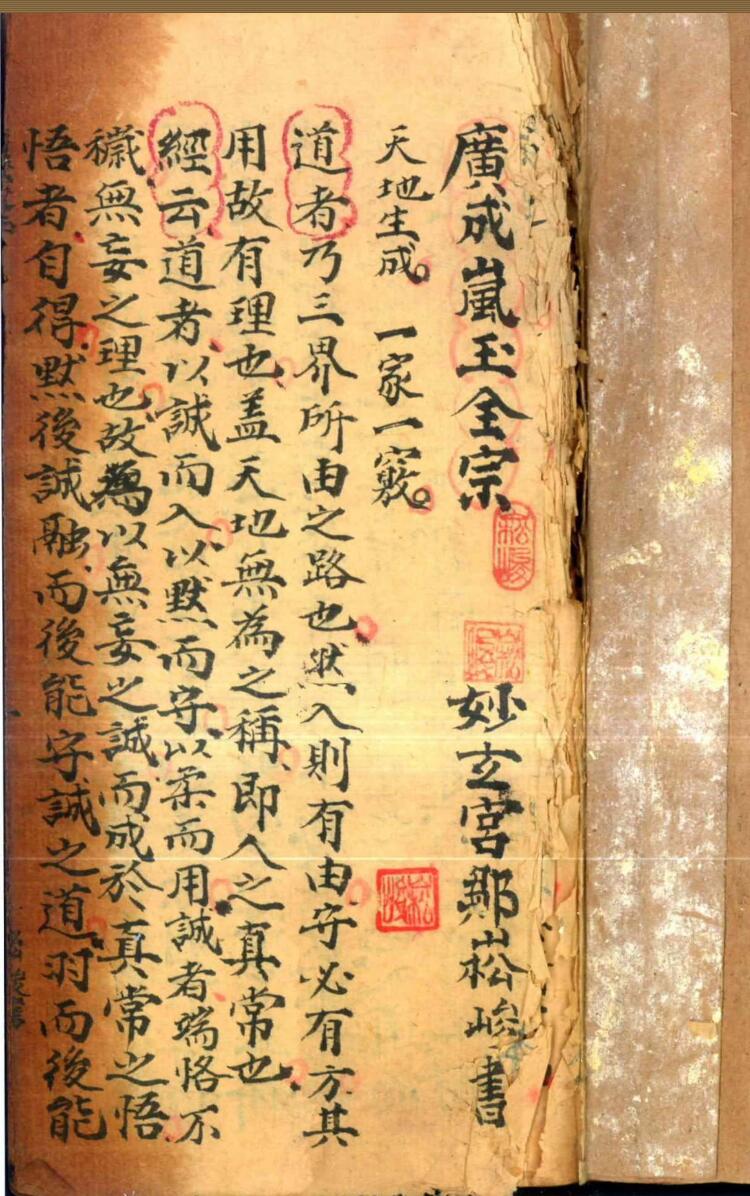 廣成嵐玉全宗 妙玄宮鄭崧峻書
天地生成。一家一竅。
道者乃三界所由之路也然入則有由守必有方其
用故有理也盖天地無為之稱即人之真常也
經云道者以誠而入以默而守以柔而用誠者端恪不
穢無妄之理也故為以無妄之誠而成於真常之悟
悟者自得默後誠融而後能守誠之道羽而後能